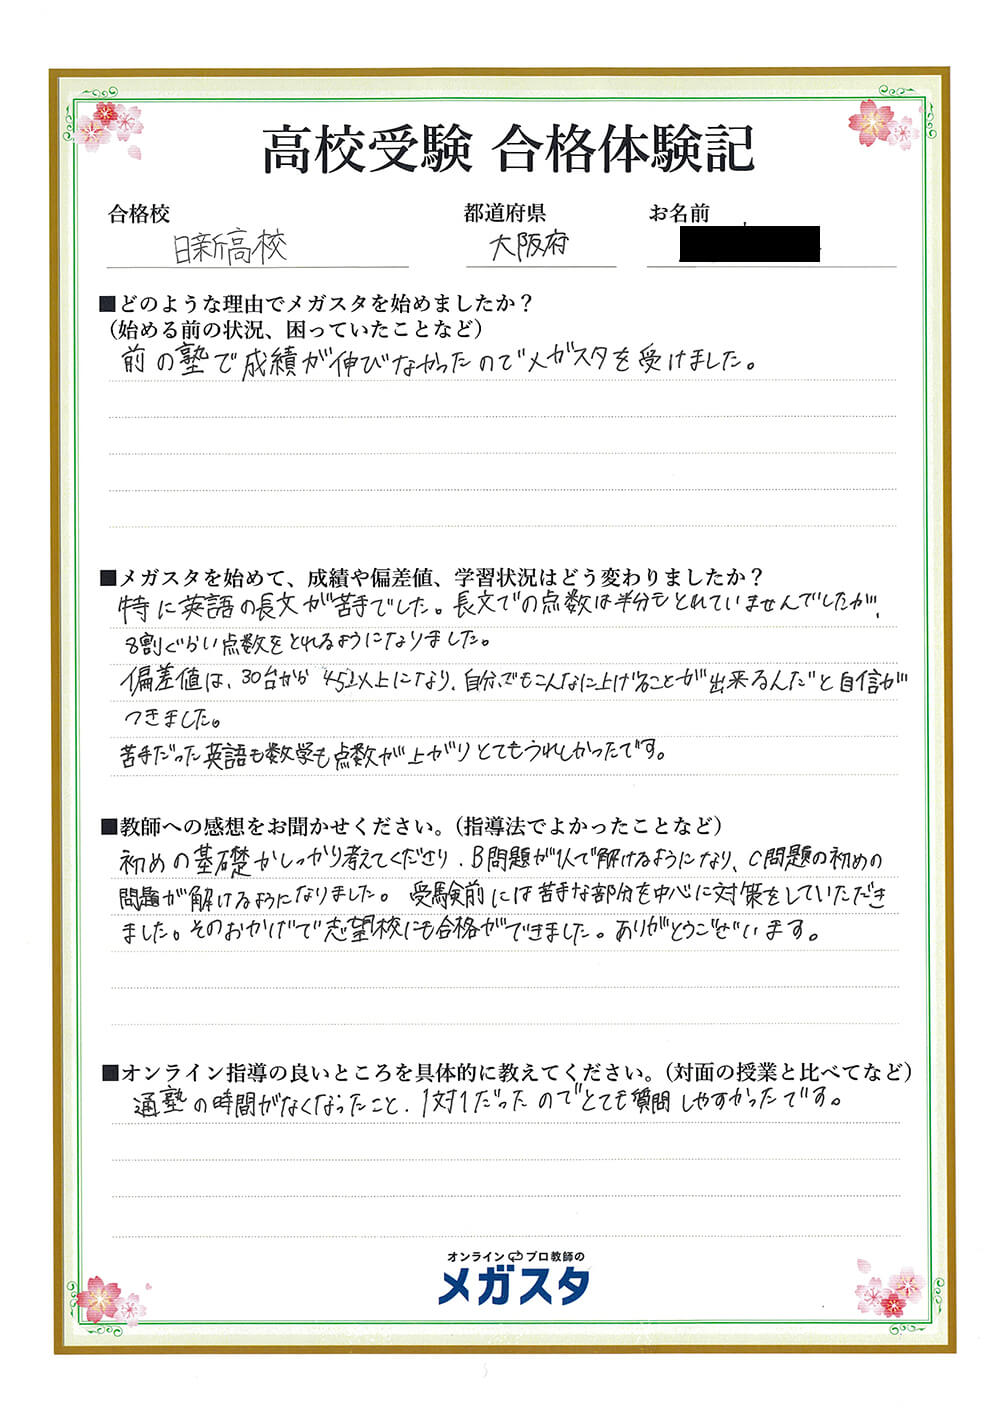 高校受験 合格体験記
合格校 都道府県 お名前
日新高校 大阪府
■どのような理由でメガスタを始めましたか？
（始める前の状況、困っていたことなど）
前の塾で成績が伸びなかったのでメガスタを受けました。
■メガスタを始めて、成績や偏差値、学習状況はどう変わりましたか？
特に英語の長文が苦手でした。長文での点数は半分もとれていませんでしたが、
8割ぐらい点数をとれるようになりました。
偏差値は、30台から45以上になり、自分でもこんなに上げることが出来るんだと自信が
つきました。
苦手だった英語も数学も点数が上がりとてもうれしかったです。
■教師への感想をお聞かせください。（指導法でよかったことなど）
初めの基礎からしっかり考えてくださり、B問題が1人で解けるようになり、C問題の初めの
問題が解けるようになりました。受験前には苦手な部分を中心に対策をしていただき
ました。そのおかげで志望校にも合格ができました。ありがとうございます。
■オンライン指導の良いところを具体的に教えてください。（対面の授業と比べてなど）
通塾の時間がなくなったこと、1対1だったのでとても質問しやすかったです。
オンライン プロ教師の
メガスタ